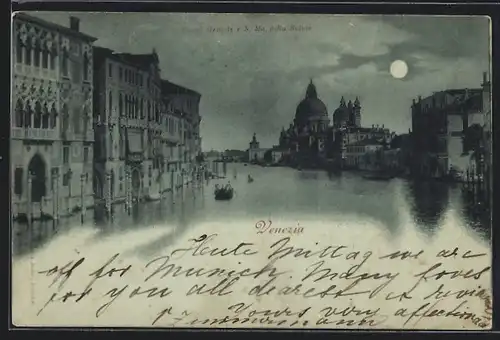 Canal Grande e S. Ma. della Salute
Venezia
Heute Mittag we are
off for Munich. Many loves
for you all dearest &
Yours very affection
Zimmermann